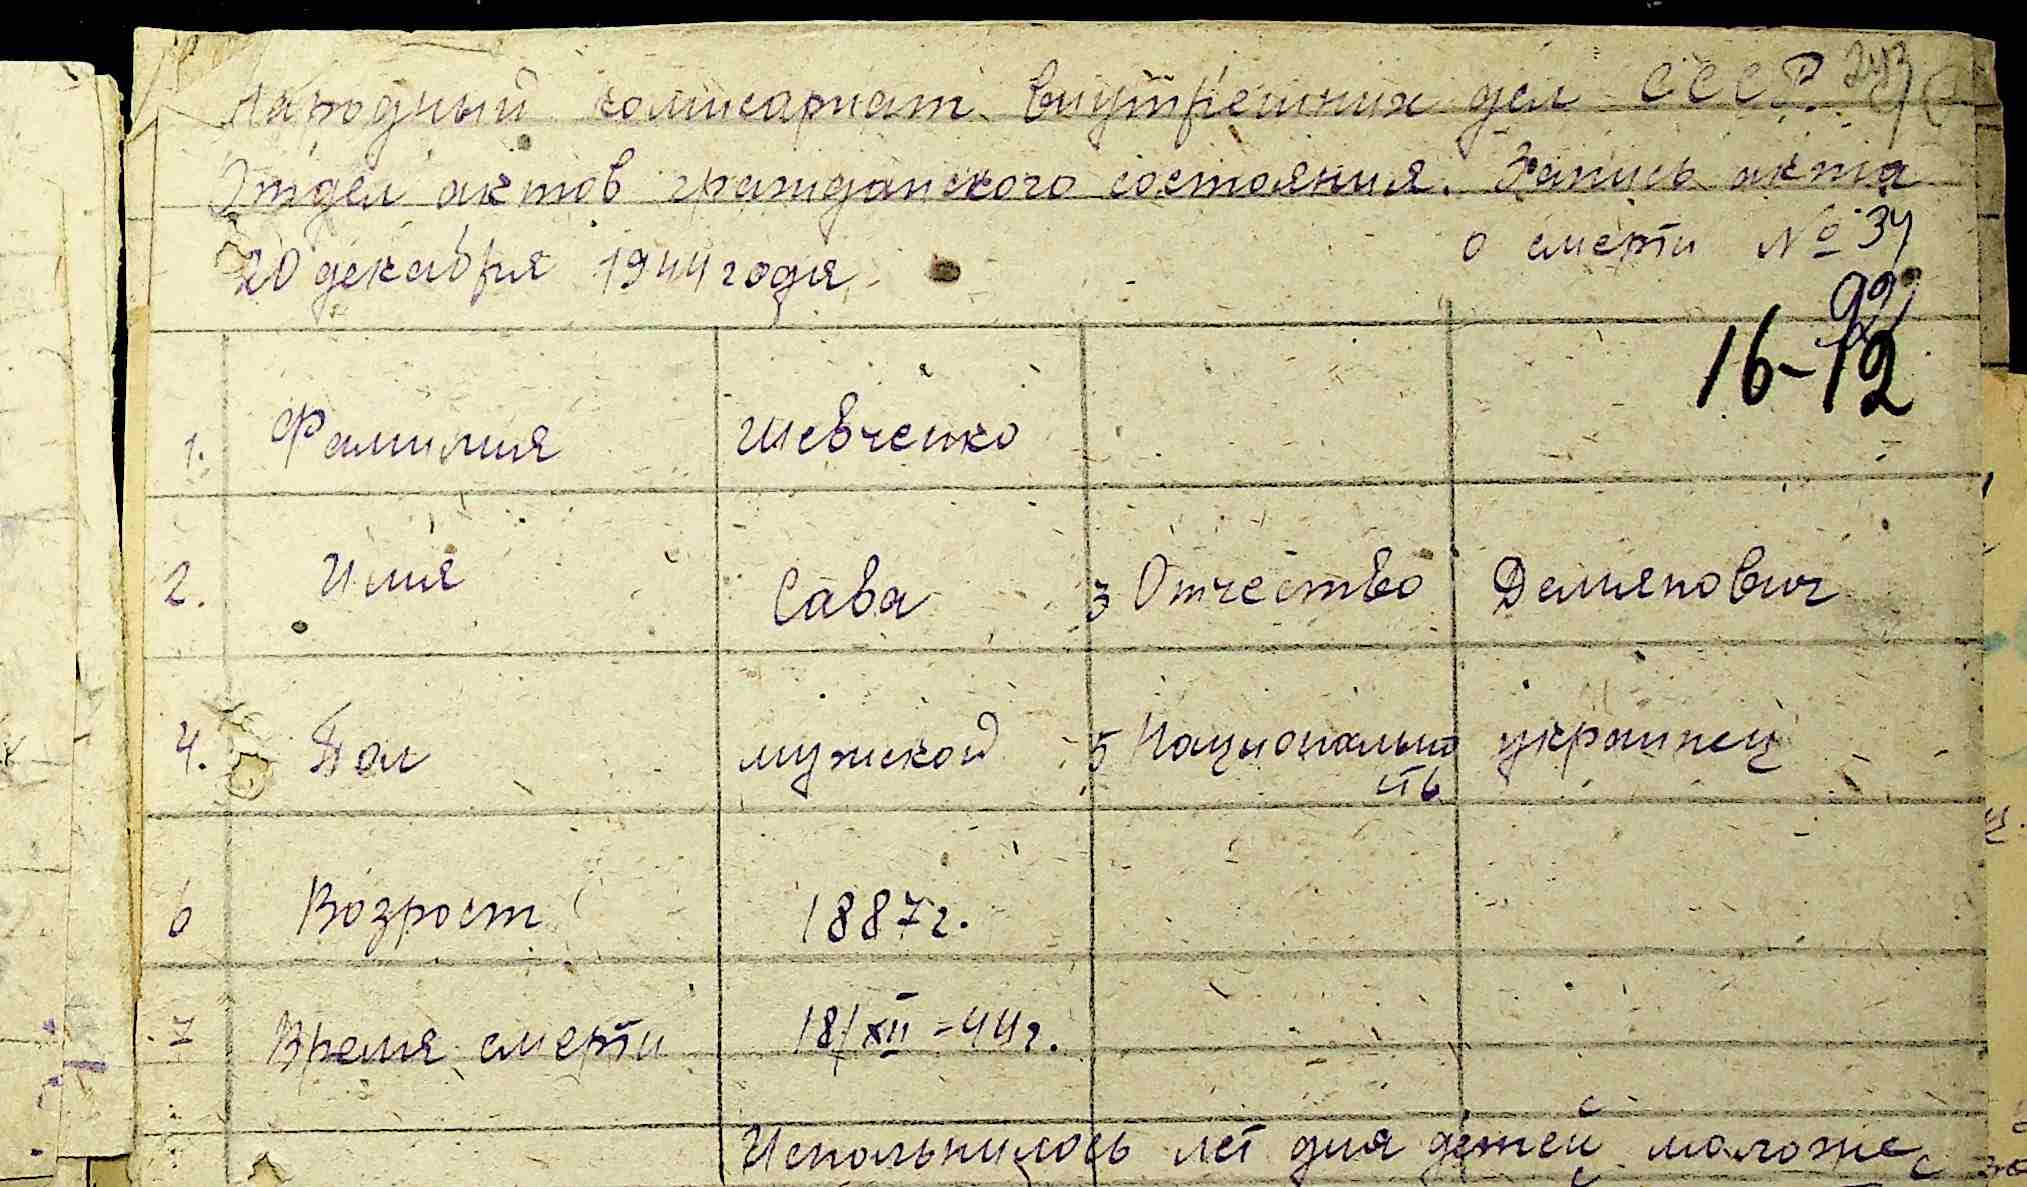 Народный комисариат внутренних дел СССР.
Отдел актов гражданского состояния. Запись акта
20 декабря 1944 года о смерти № 34
16-12
1. Фамилия Шевченко
2. Имя Сава 3 Отчество Демянович
4. Пол мужской 5 Национальность украинец
6 Возрост 1887г.
7 Время смерти 18/XII-44г.
Испольнилось лет для детей моложе